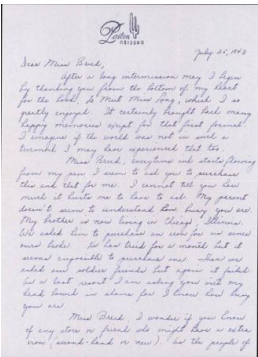 Poston
ARIZONA
July 25, 1943
Dear Miss Breed,
After a long intermission may I begin
by thanking you from the bottom of my heart
for the book, So Meet Miss Song, which I so
greatly enjoyed. It certainly brought back many
happy memories except for that first formal.
I imagine if the world was not in such a
turmoil I may have experienced that too.
Miss Breed, everytime ink starts flowing
from my pen I seem to ask you to purchase
this and that for me. I cannot tell you how
much it hurts me to have to ask. My parent
doesn't seem to understand how busy you are.
My brother is now living in Chicago, Illinois.
We asked him to purchase an iron for us since
ours broke. He has tried for a month but it
seems impossible to purchase one. Then we
asked our soldier friends but again it failed.
As a last resort I am asking you with my
head bowed in shame for I know how busy
you are.
Miss Breed, I wonder if you know
of any store or friend who might have a extra
iron (second-hand or new). the people of